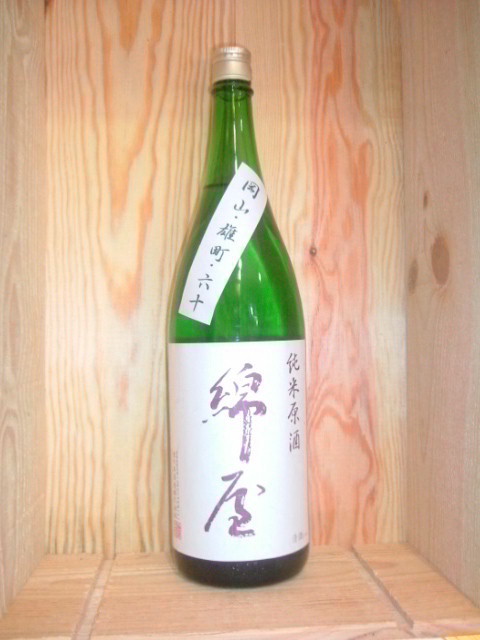 岡山・雄町・六十
純米原酒
綿屋